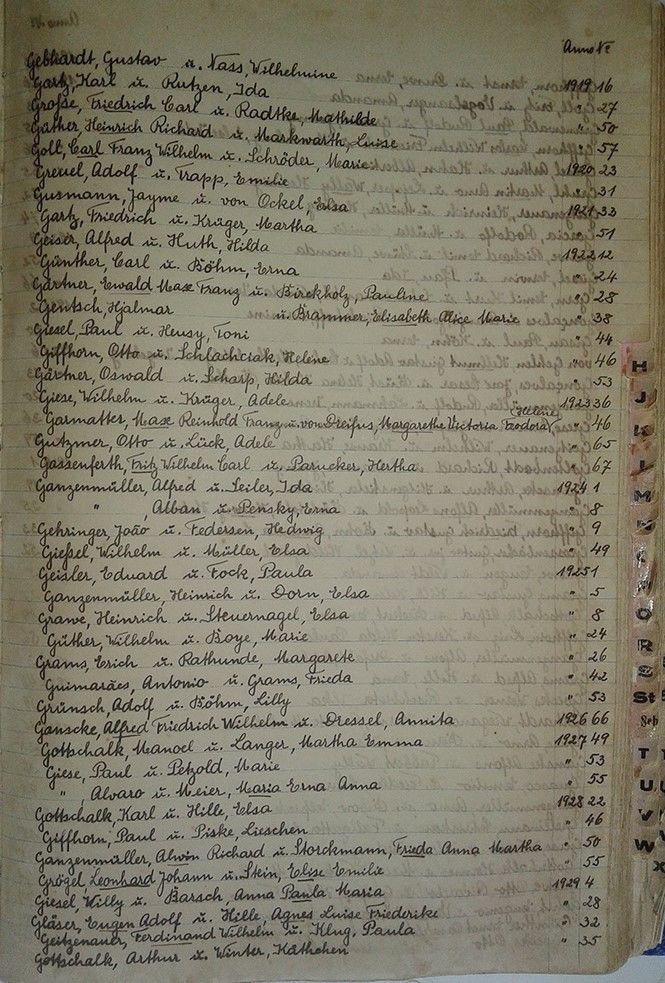 Anno Nº
Gebhardt, Gustav u. Nass, Wilhelmine 1919 16
Gartz, Karl u. Rutzen, Ida " 27
Große, Friedrich Carl u. Radtke, Mathilde " 50
Güther Heinrich Richard u. Markwarth, Luise " 57
Goll, Carl Franz Wilhelm u. Schröder, Marie 1920 23
Greuel, Adolf u. Trapp, Emilie " 31
Gusmann, Jayme u. von Ockel, Elsa 1921 33
Gartz, Friedrich u. Krüger, Martha " 51
Geiser, Alfred u. Huth, Hilda 1922 12
Günther, Carl u. Böhm, Erna " 24
Gärtner, Ewald Max Franz u. Birckholz, Pauline " 28
Gentsch, Hjalmar u. Brammer, Elisabeth Alice Marie " 38
Giesel, Paul u. Heusy, Toni " 44
Giffhorn, Otto u. Schlachciak, Helene " 46
Gärtner, Oswald u. Scharp, Hilda " 53
Giese, Wilhelm u. Krüger, Adele 1923 36
Garmatter, Max Reinhold Franz u. von Dreifus, Margarethe Victoria Feodora " 46
Gutzmer, Otto u. Lück, Adele " 65
Gassenferth, Fritz Wilhelm Carl u. Parucker, Hertha " 67
Ganzenmüller, Alfred u. Seiler, Ida 1924 1
" , Alban u. Pensky, Erna " 8
Gehringer, João u. Federsen, Hedwig " 9
Gießel, Wilhelm u. Müller, Elsa " 49
Geisler, Eduard u. Fock, Paula 1925 1
Ganzenmüller, Heinrich u. Dorn, Elsa " 5
Grawe, Heinrich u. Steuernagel, Elsa " 8
Güther, Wilhelm u. Boye, Marie " 24
Grams, Erich u. Rathunde, Margarete " 26
Guimarães, Antonio u. Grams, Frieda " 42
Grünsch, Adolf u. Böhm, Lilly " 53
Ganscke, Alfred Friedrich Wilhelm u. Dressel, Annita 1926 66
Gottschalk, Manoel u. Langer, Martha Emma 1927 49
Giese, Paul u. Petzold, Marie " 53
" , Alvaro u. Meier, Maria Erna Anna " 55
Gottschalk, Karl u. Hille, Elsa 1928 22
Giffhorn, Paul u. Piske, Lieschen " 46
Ganzenmüller, Alwin Richard u. Storckmann, Frieda Anna Martha " 50
Grögel, Leonhard Johann u. Stein, Elise Emilie " 55
Giesel, Willy u. Barsch, Anna Paula Maria 1929 4
Gläser, Eugen Adolf u. Hille, Agnes Luise Friederike " 28
Geitzenauer, Ferdinand Wilhelm u. Klug, Paula " 32
Gottschalk, Arthur u. Winter, Käthchen " 35
H
J
K
L
M
N
O
R
S
St
Sch
T
U
V
W
X